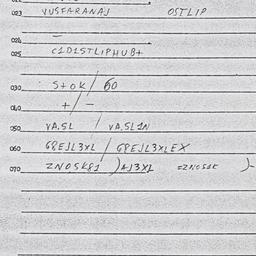 023 VUSFARANAJ OSTLIP
024 —
025 C1D1STLIPHUB+
030 S+OK / 60
040 + / -
050 VA.SL / VA.SL1N
060 G8EJL3XL / G8EJL3XLEX
070 ZNOSK81